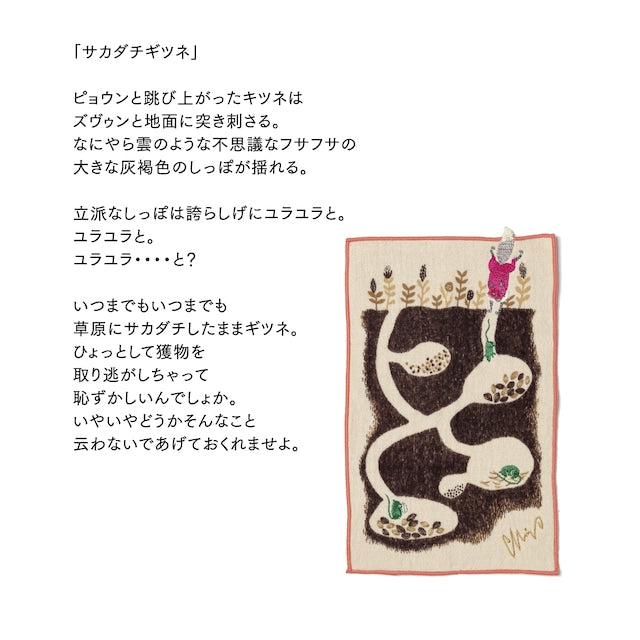 「サカダチギツネ」
ピョウンと跳び上がったキツネは
ズヴゥンと地面に突き刺さる。
なにやら雲のような不思議なフサフサの
大きな灰褐色のしっぽが揺れる。
立派なしっぽは誇らしげにユラユラと。
ユラユラと。
ユラユラ・・・・と？
いつまでもいつまでも
草原にサカダチしたままギツネ。
ひょっとして獲物を
取り逃がしちゃって
恥ずかしいんでしょうか。
いやいやどうかそんなこと
云わないであげておくれませよ。